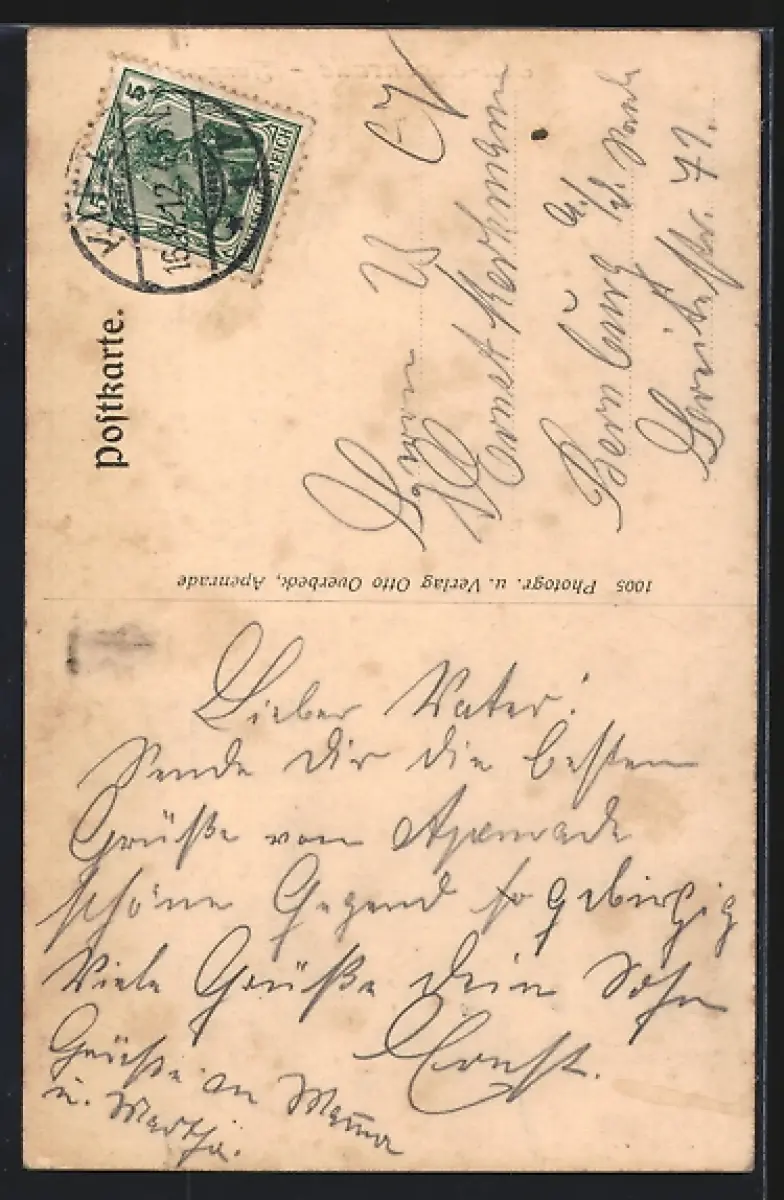 Postkarte.
5
DEUTSCHES REICH
16.8.12
Herrn
Ernst
Bernburg a/d. Saale
Breitestr. 71.
1005 Photogr. u. Verlag Otto Overbeck, Apenrade
Lieber Vater!
Sende Dir die besten
Grüße von Apenrade
schöne Gegend so gebirgig
Viele Grüße Dein Sohn
Ernst.
Grüße an Mama
u. Martha.